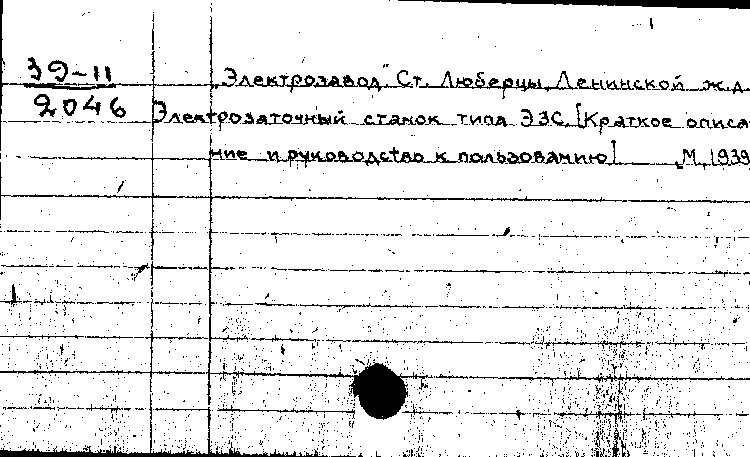 39-11
2046
„Электрозавод" Ст. Люберцы, Ленинской ж.д.
Электрозаточный станок типа ЭЗС. [Краткое описа
ние и руководство к пользованию] М, 1939